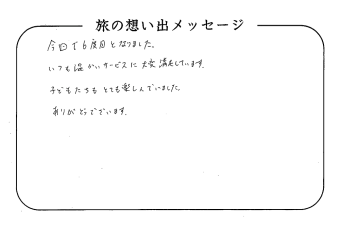 旅の想い出メッセージ
今回で6度目となりました。
いつも温かいサービスに大変満足しています。
子どもたちもとても楽しんでいました。
ありがとうございます。